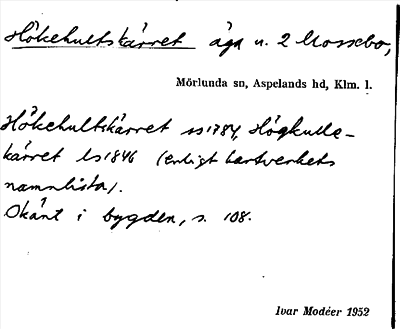 Hökehultskärret äga n. 2 Mossebo,
Mörlunda sn, Aspelands hd, Klm. l.
Hökehultskärret ss1784, Högkulle-
kärret ls1846 (enligt lantverkets
namnlista).
Okänt i bygden, s. 108.
Ivar Modéer 1952